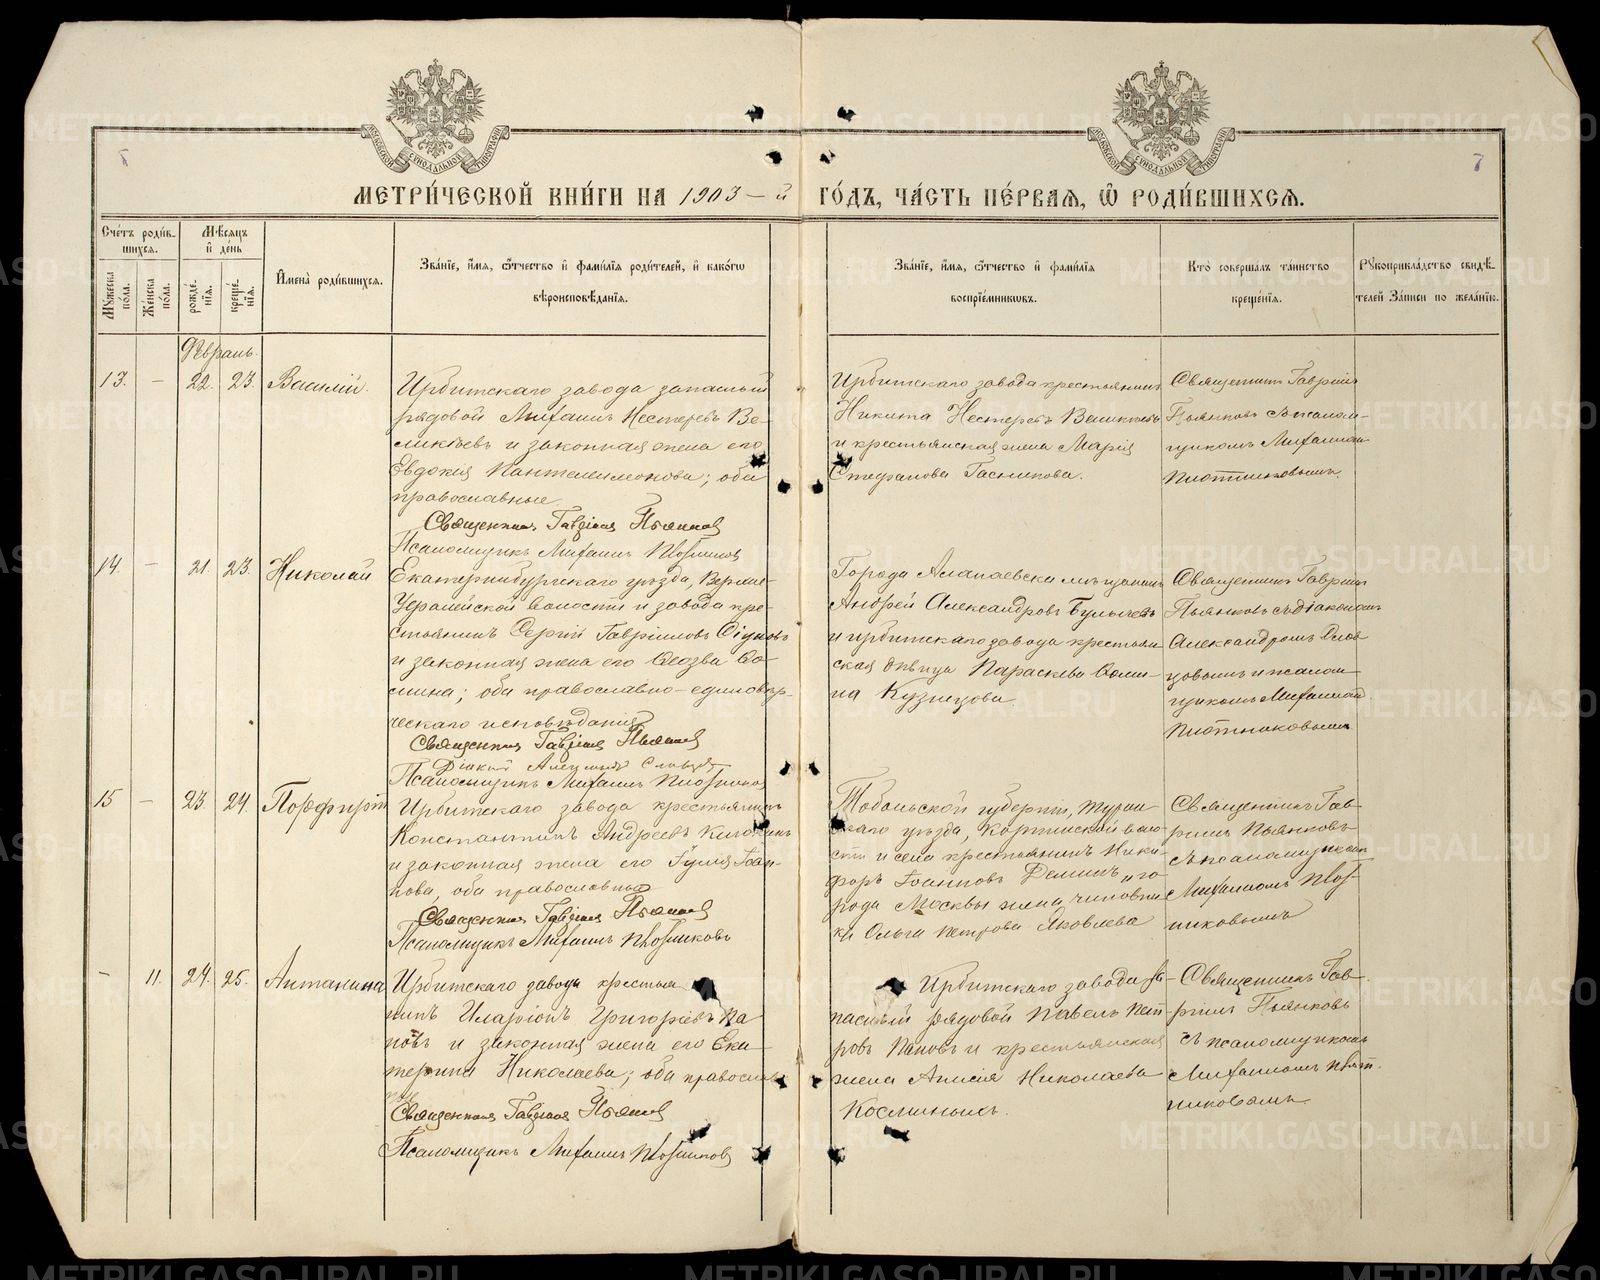 МЕТРИ́ЧЕСКОЙ КНИ́ГИ НА 1903-й ГО́ДЪ, ЧА́СТЬ ПЕ́РВАѦ, Ѡ҆ РОДИ́ВШИХСѦ.
7
Сче́тъ роди́вшихсѧ.
Мꙋ́жеска по́ла.
Же́нска по́ла.
Мѣ́сѧцъ и҆ де́нь
рожде́нїѧ.
креще́нїѧ.
И҆мена̀ роди́вшихсѧ.
Зва́нїе, и҆́мѧ, ѻ҆́тчество и҆ фами́лїѧ роди́телей, и҆ како́гѡ
вѣроисповѣ́данїѧ.
Зва́нїе, и҆́мѧ, ѻ҆́тчество и҆ фами́лїѧ
воспрїе́мникѡвъ.
Кто̀ соверша́лъ та́инство
креще́нїѧ.
Рꙋкоприкла́дство свидѣ́телей За́писи по жела́нїю.
Февраль.
13. — 22. 23. Василій.
Ирбитскаго завода запасный
рядовой Михаилъ Нестеровъ Ве-
ликіевъ и законная жена его
Евдокия Пантелеимонова; оба
православные
Священникъ Гавріилъ Пьянковъ
Псаломщикъ Михаилъ Плотниковъ
Ирбитскаго завода крестьянинъ
Никита Нестеровъ
и крестьянская жена Марія
Стефанова
Священникъ Гавріилъ
Пьянковъ съ псалом-
щикомъ Михаиломъ
Плотниковымъ.
14. — 21. 23. Николай
Екатеринбургскаго уѣзда, Верхне-
Уфалейской волости и завода кре-
стьянинъ Сергій Гавріиловъ
и законная жена его
оба православно-единовѣр-
ческаго исповѣданія
Священникъ Гавріилъ Пьянковъ
Псаломщикъ Михаилъ Плотниковъ
Города Алапаевска мѣщанинъ
Андрей Александровъ Булычевъ
и ирбитскаго завода крестьян-
ская дѣвица Параскева
Кузнецова.
Священникъ Гавріилъ
Пьянковъ съ діакономъ
Александромъ Слов-
цовымъ и псалом-
щикомъ Михаиломъ
Плотниковымъ
15 — 23. 24. Порфирій
Ирбитскаго завода крестьянинъ
Константинъ Андреевъ
и законная жена его Іулія Іоан-
нова, оба православные
Священникъ Гавріилъ Пьянковъ
Псаломщикъ Михаилъ Плотниковъ
Тобольской губерніи, Турин-
скаго уѣзда, воло-
сти и села крестьянинъ Ники-
форъ Іоанновъ Деминъ и го-
рода Москвы жена чиновни-
ка Ольга Петрова Яковлева
Священникъ Гав-
ріилъ Пьянковъ
съ псаломщикомъ
Михаиломъ Плот-
никовымъ
— 11. 24. 25. Антонина
Ирбитскаго завода крестья-
нинъ Иларіонъ Григорьевъ Па-
новъ и законная жена его Ека-
терина Николаева; оба православ-
ные
Священникъ Гавріилъ Пьянковъ
Псаломщикъ Михаилъ Плотниковъ
Ирбитскаго завода за-
пасный рядовой Павелъ Пет-
ровъ Пановъ и крестьянская
жена Анисія Николаева
Космыныхъ.
Священникъ Гав-
ріилъ Пьянковъ
съ псаломщикомъ
Михаиломъ Плот-
никовымъ